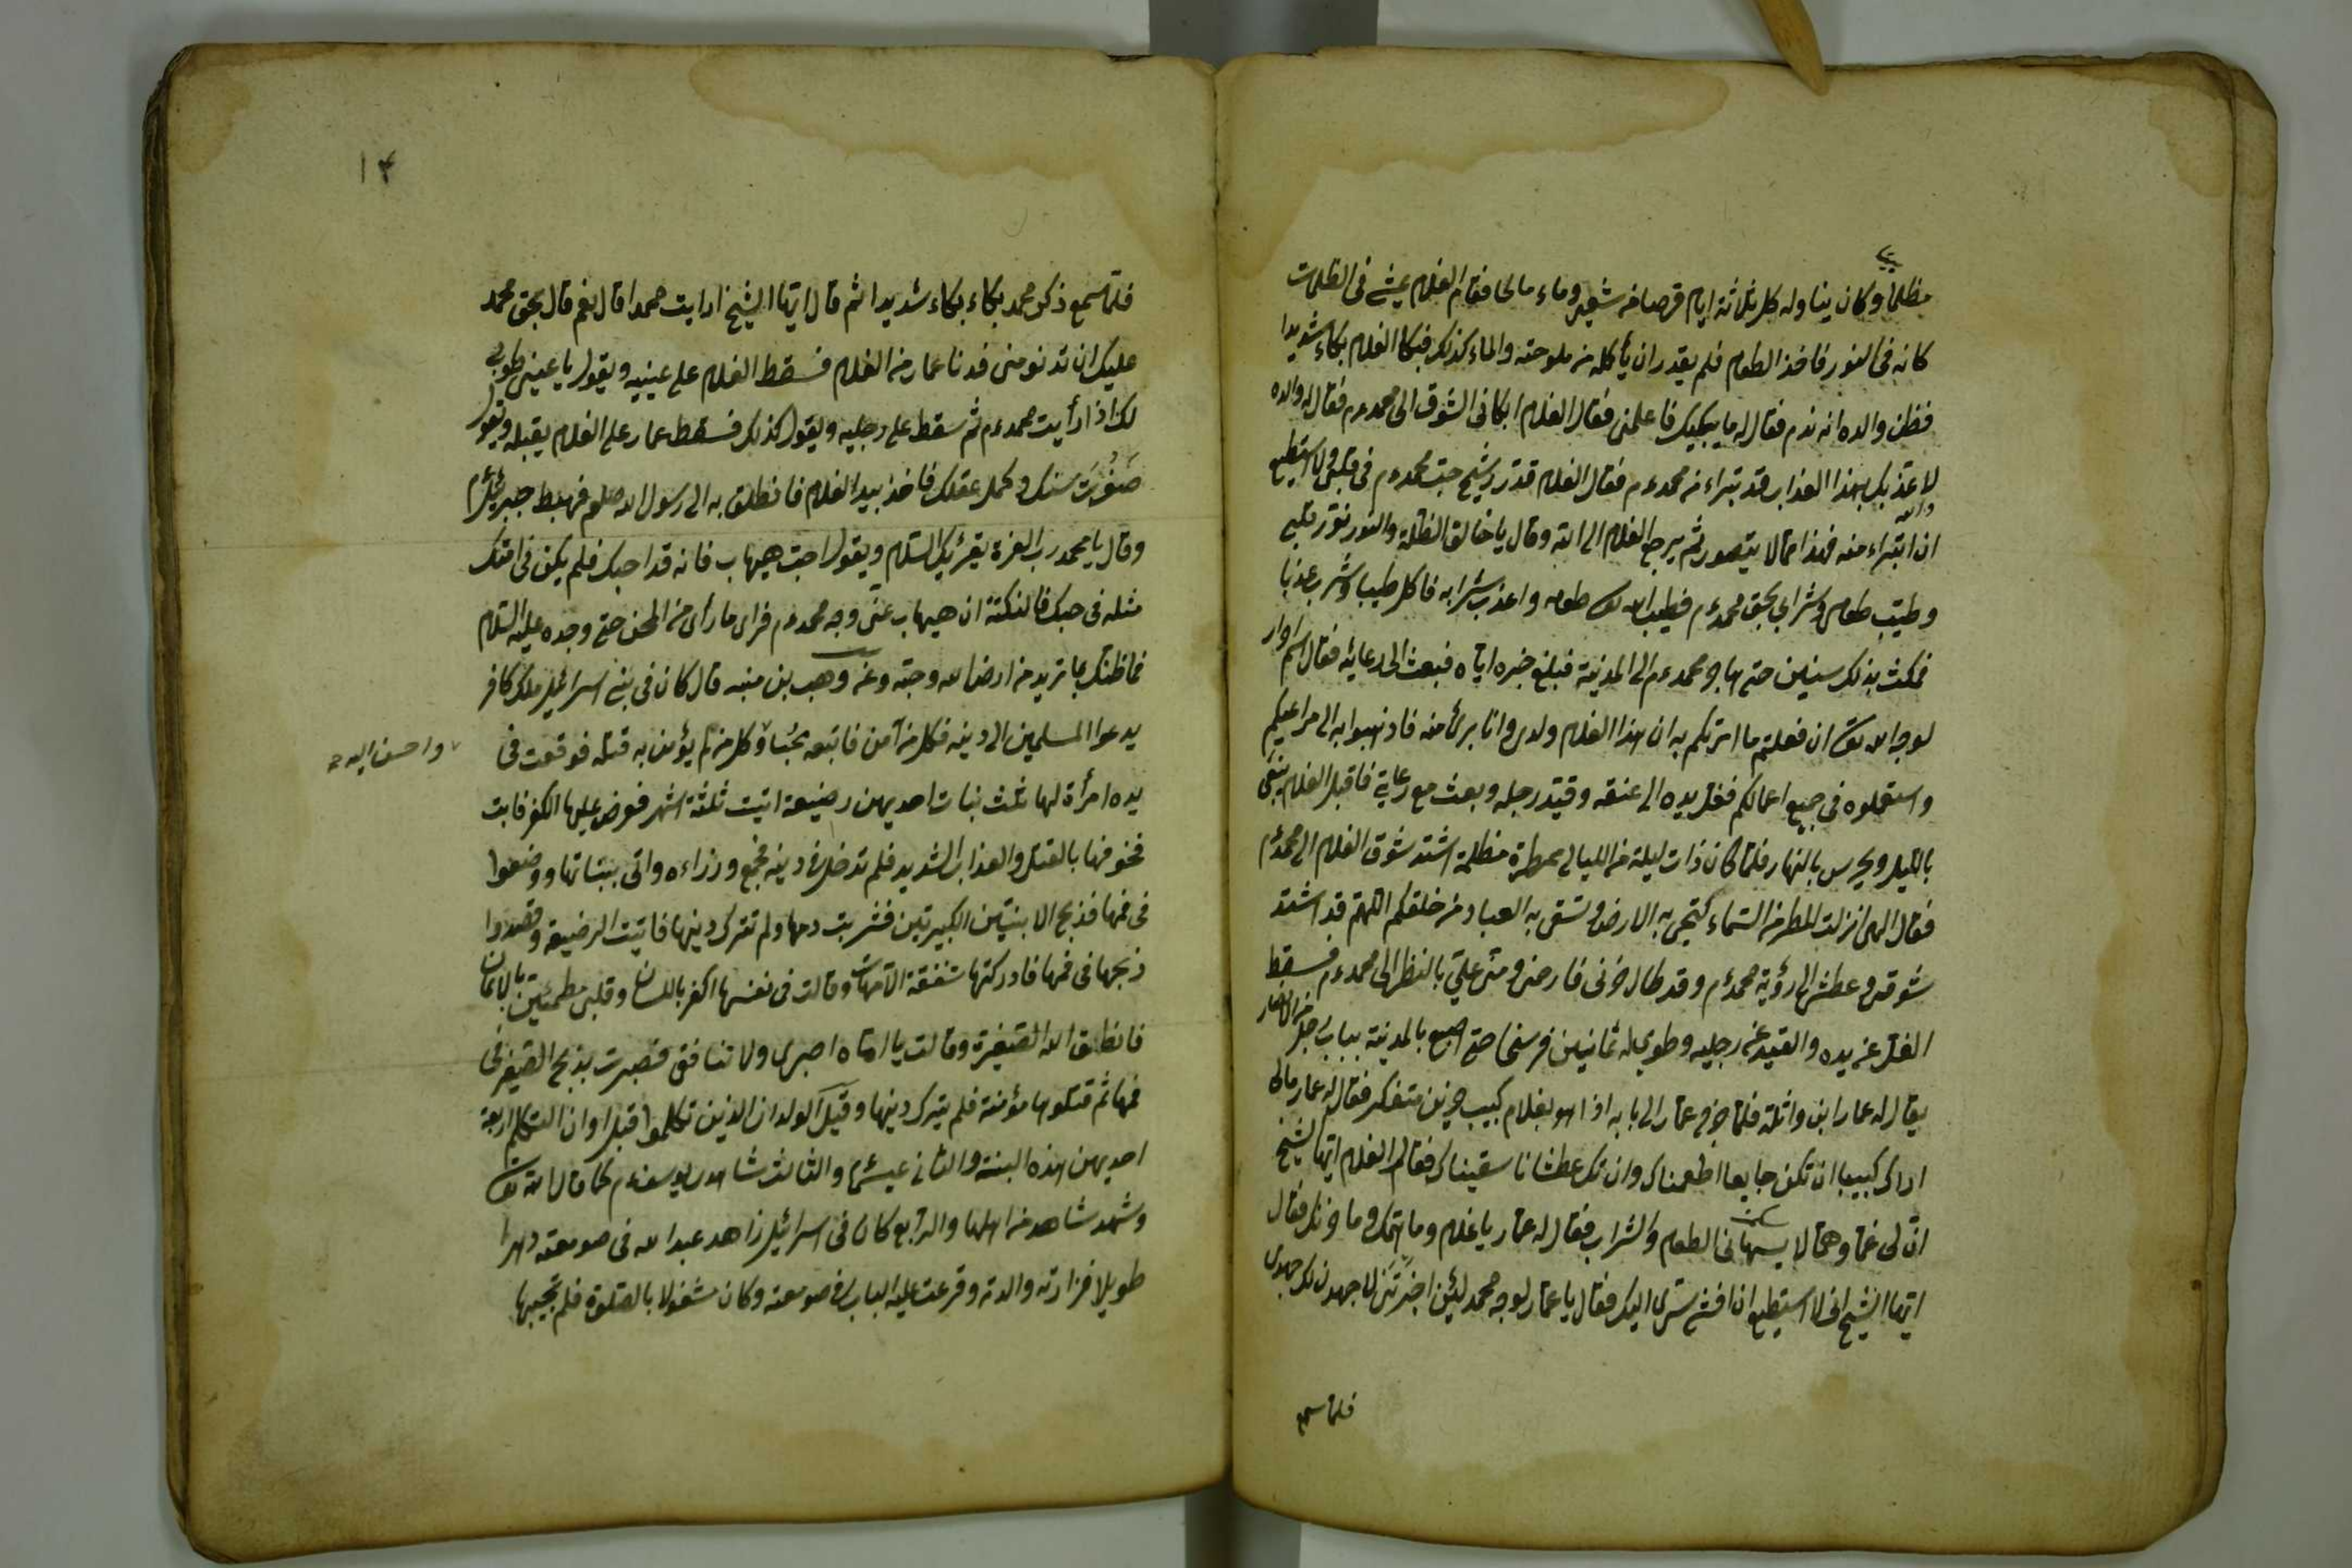 مظلما وكان يناوله كل ثلاثة ايام قرصا من شعير وماء مالحا فقام الغلام يمشى فى الظلمات
كانه فى النور فاخذ الطعام فلم يقدر ان يأكله من ملوحته والماء كذلك فبكا الغلام بكاء شديدا
فظن والده انه ندم فقال له ما يبكيك فاعلمنى فقال الغلام ابكانى الشوق الى محمد ءم فقال له والده
لاعذبك بهذا العذاب قد تبراء من محمد ءم فقال الغلام قد حب محمد ءم فى قلبى ولا استطيع
ان ابتراء منه فهذا مما لا يتصور ثم يرجع الغلام الى الله وقال يا خالق الظلمة والنور نور قلبى
وطيب طعامى وشرابى بحق محمد ءم فطيب الله طعامه واعذب شرابه فاكل طيبا وشرب عذبا
فمكث بذلك سنين حتى هاجر محمد ءم الى المدينة فبلغ خبره اباه فبعث الى رعائه فقال
لوجه الله ان فعلتم ما امرتكم به ان هذا الغلام ولدى وانا برئ منه فاذهبوا به الى مراعيكم
واستعملوه فى جميع اعمالكم فغل يده الى عنقه وقيد رجله وبعث مع رعاية فاقبل الغلام
بالليل ويحرس بالنهار فلما كان ذات ليلة من الليالى ممطرة مظلمة اشتد شوق الغلام الى محمد ءم
فقال الهى انزلت المطر من السماء لتحيى به الارض وتسقى به العباد من خلقكم اللهم قد اشتد
شوقى وعطشى الى رؤية محمد ءم وقد طال حزنى فارحمنى ومن على بالنظر الى محمد ءم فسقط
الغل عن يده والقيد عن رجليه وطوى له ثمانين فرسخا حتى اصبح بالمدينة بباب رجل من الانصار
يقال له عمار ابن واثلة فلما خرج عمار الى بابه اذا هو بغلام كئيب حزين متفكر فقال له عمار مالى
اراك كئيبا ان تكن جايعا اطعمناك وان تك عطشانا سقيناك فقال الغلام ايها الشيخ
ان لى غما وهما لا الطعام والشراب فقال له عمار يا غلام وما همك وما حزنك فقال
ايها الشيخ انى لا استطيع ان افشى سرى اليك فقال يا عمار لوجه محمد لئن اخبرتنى لاجهدن لك جهدى
فلما سمع
١٤
فلما سمع ذكر محمد بكاء بكاء شديدا ثم قال ايها الشيخ ارايت محمدا قال نعم قال بحق محمد
عليك ان تدنو منى فدنا عمار من الغلام فسقط الغلام على عينيه ويقول يا عينى طوبى
لك اذا رأيت محمد ءم ثم سقط على رجليه ويقول كذلك فسقط عمار على الغلام يقبله ويقول
صغرت سنك وكمل عقلك فاخذ بيد الغلام فانطلق به الى رسول الله صلعم فهبط جبرئيل ءم
وقال يا محمد رب العزة يقرئك السلام ويقول احب هيهاب فانه قد احبك فلم يكن فى امتك
مثله فى حبك فالنكتة ان هيهاب عنى وجه محمد ءم فراى ما رأى من المحن حتى وجده عليه السلام
فما ظنك بما تريد من ارض الله وجنته وعن وهب بن منبه قال كان فى بنى اسرائيل ملك كافر
يدعوا المسلمين الى دينه فكل من آمن فاتبعه نجا وكل من لم يؤمن به قتله فوقعت فى
واحسن اليه
يده امرأة لها ثلث بنات احديهن رضيعة اتيت ثلثة اشهر فعرض عليها الكفر فابت
فخوفها بالقتل والعذاب الشديد فلم تدخل فى دينه فجمع وزراءه واتى ببناتها ووضعوا
فى فمها فذبح الابنتين الكبيرتين فشربت دمها ولم تترك دينها فاتيت الرضيعة وقصدوا
ذبحها فى فمها فادركتها شفقة الامهات وقالت فى نفسها اكفر باللسان وقلبى مطمئن بالايمان
فانطق الله الصغيرة وقالت يا اماه اصبرى ولا تنافق فصبرت بذبح الصغير فى
فمها ثم قتلوها مؤمنة فلم يترك دينها وقيل الولدان الذين تكلموا قبل اوان التكلم اربعة
احديهن هذه البنت والثانى عيسى ءم والثالث شاهد يوسف ءم كما قال الله تعالى
وشهد شاهد من اهلها والرابع كان فى اسرائيل زاهد عبد الله فى صومعته دهرا
طويلا فزارته والدته وقرعت عليه الباب فى صومعته وكان مشغولا بالصلوة فلم يجيبها